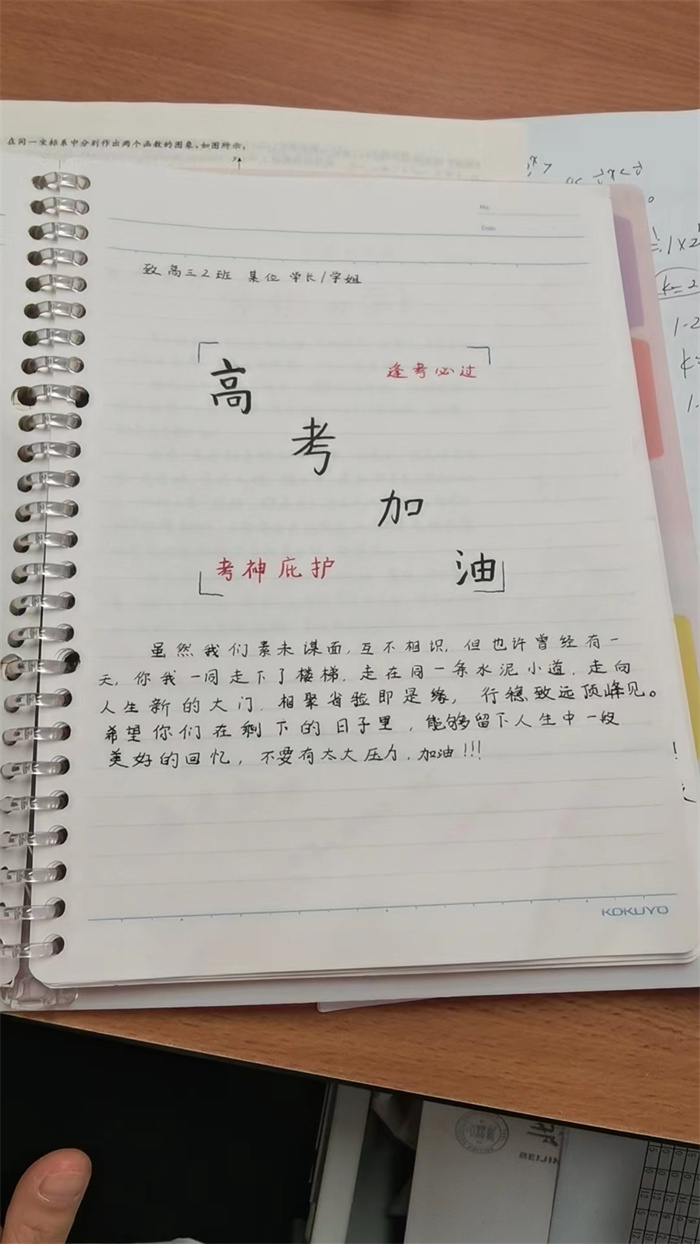 在同一坐标系中分别作出两个函数的图象,如图所示,
No.
Date
致高三2班 某位 学长/学姐
逢考必过
高
考
加
油
考神庇护
虽然我们素未谋面,互不相识,但也许曾经有一
天,你我一同走下了楼梯,走在同一条水泥小道,走向
人生新的大门,相聚省验即是缘,行稳致远顶峰见。
希望你们在剩下的日子里,能够留下人生中一段
美好的回忆,不要有太大压力,加油!!!
KOKUYO
k=2
BEIJIN